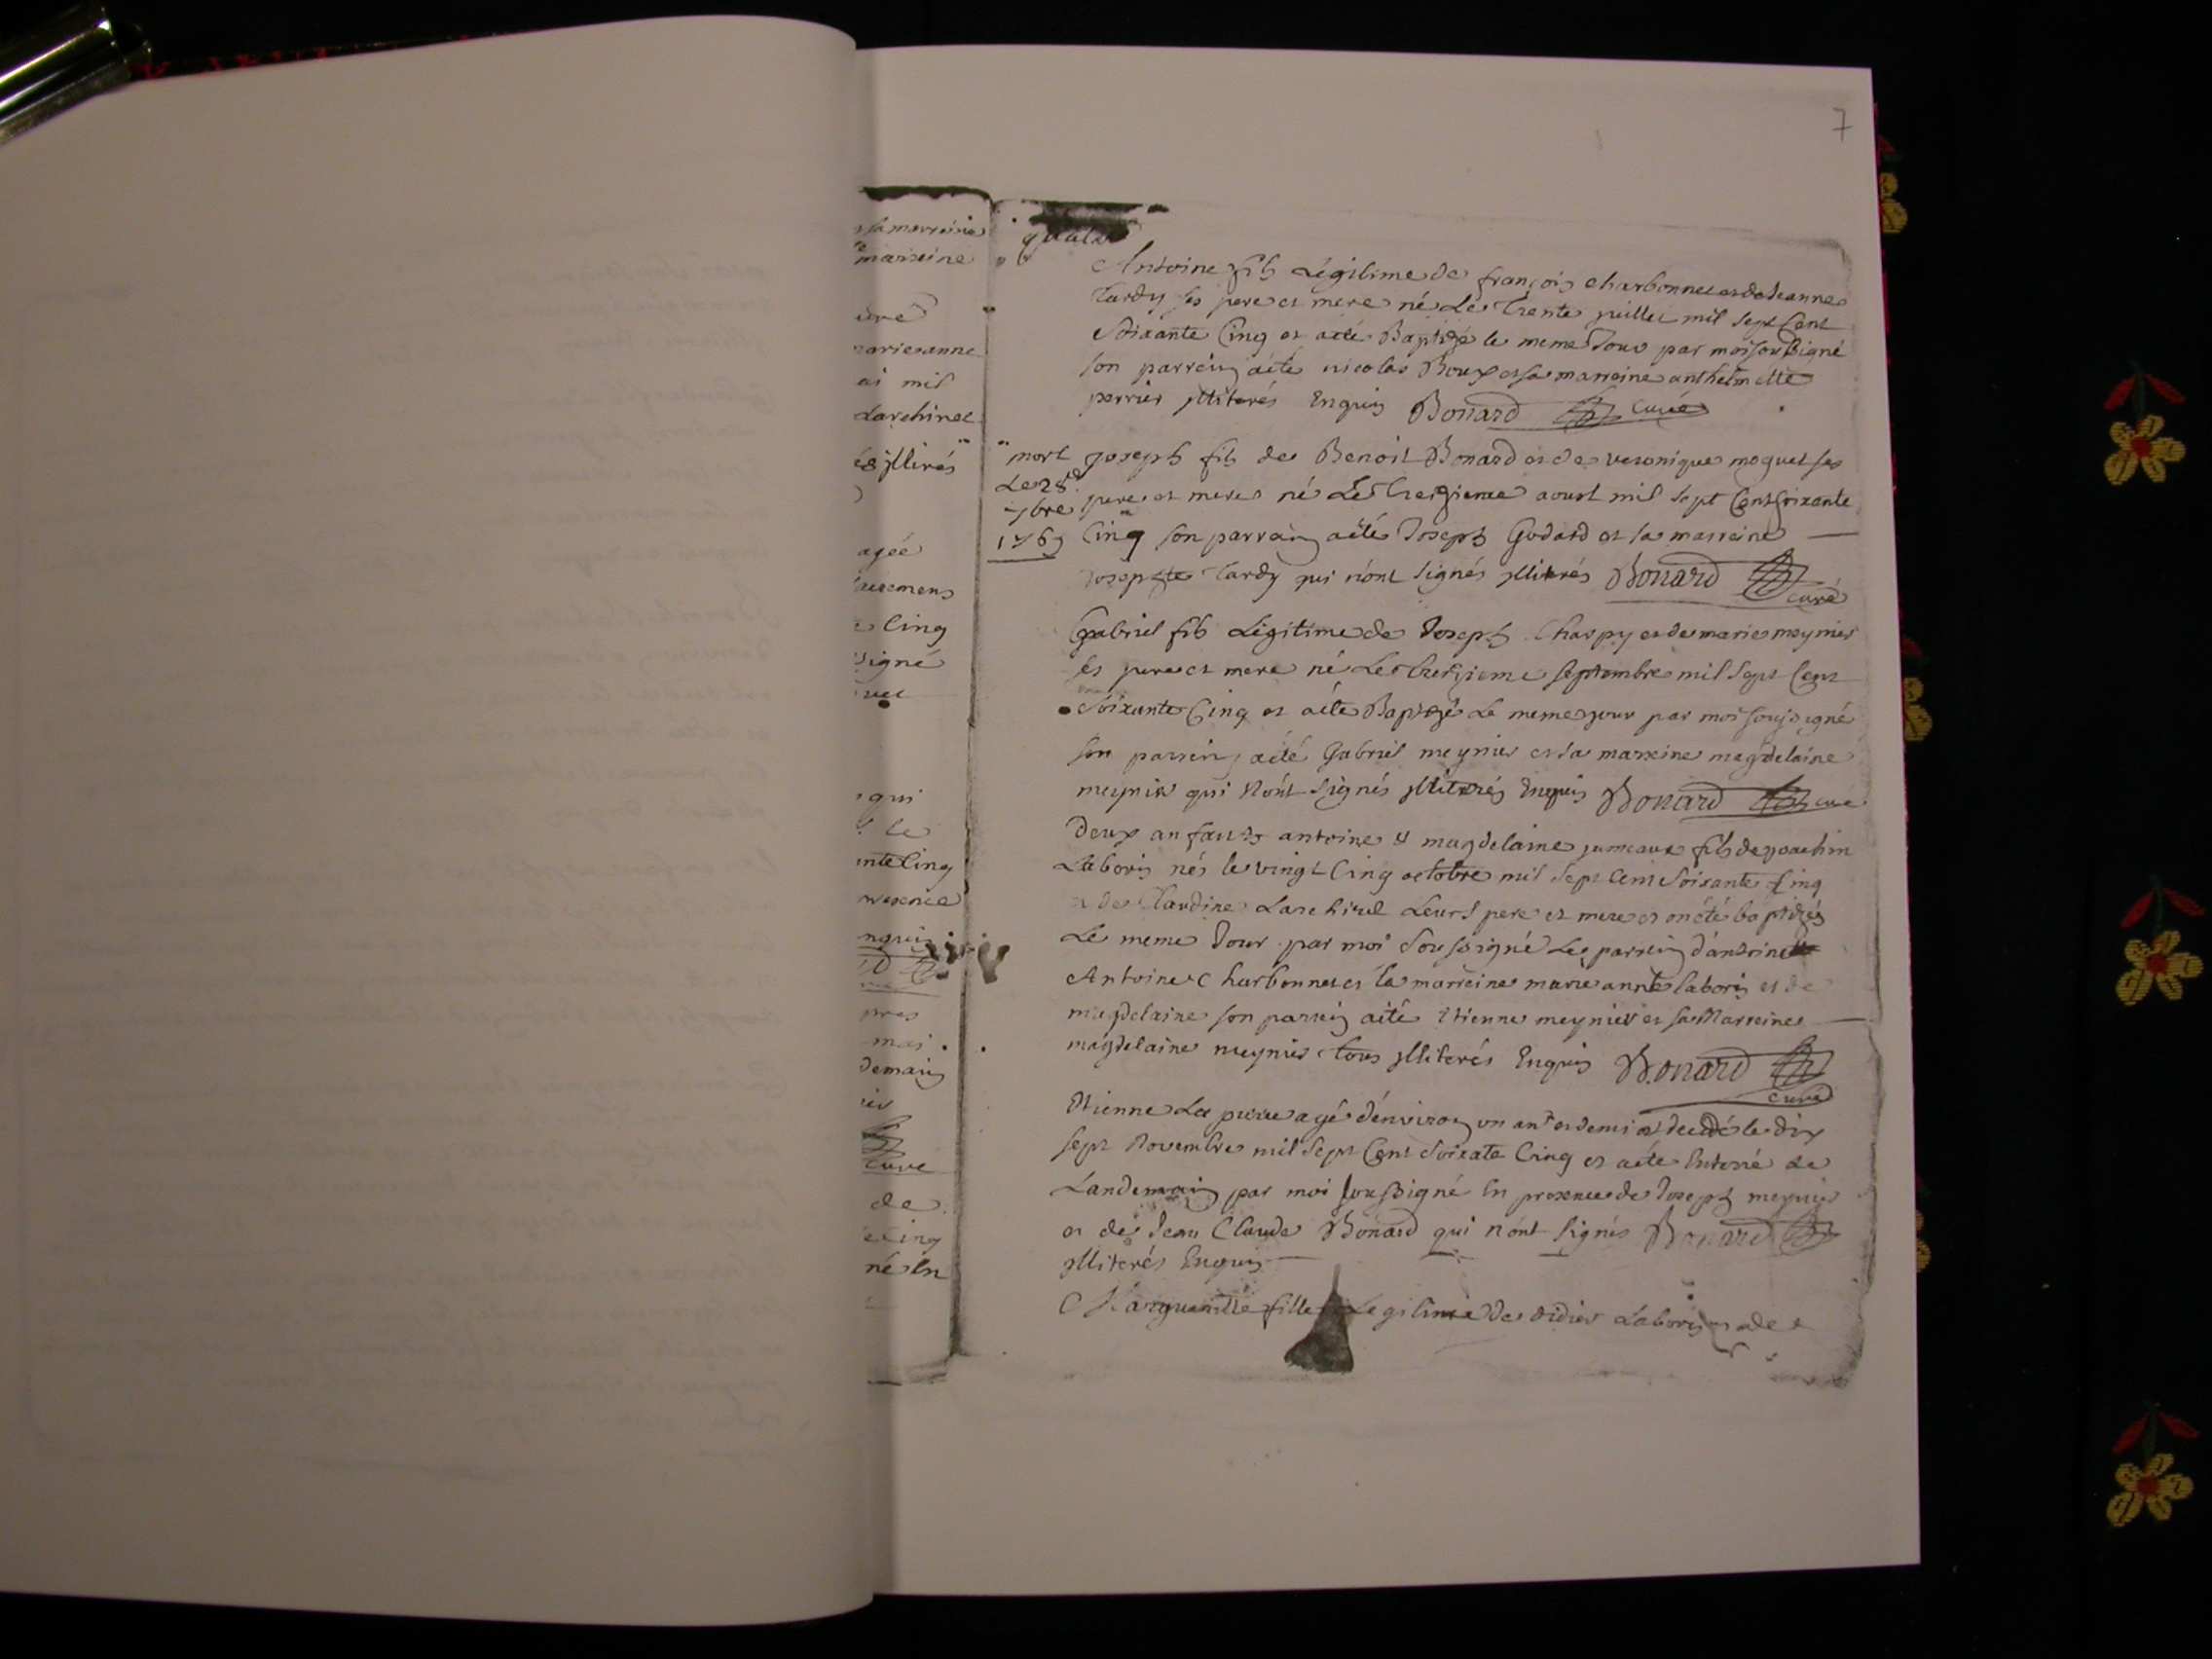 7
sa marreine
marreine
curé
marieanne
mil
Larchinet
illitérés
agée
cing
signé
qui
le
cing
presence
pres
mai
demain
curé
de
cing
né En
Antoine fils Légitime de françois charbonnet et de Jeanne
tardy ses pere et mere né Le trente juillet mil sept Cent
Soixante Cinq et aété Baptizé le meme Jour par moi soussigné
son parrein aété nicolas Boux et sa marreine anthelmette
perrier illiterés Enquis Bonard curé
mort
Le 28e
7bre
1769
joseph fils de Benoit Bonard et de veronique moguet ses
pere et mere né Le treizieme aoust mil sept Cent soixante
Cinq son parrein aété Joseph Godard et sa marreine
Josephte tardy qui n'ont signés illiterés Bonard curé
Gabriel fils Légitime de Joseph Charpy et de marie meynier
ses pere et mere né Le treizieme septembre mil sept Cent
Soixante Cinq et aété Baptizé Le meme jour par moi soussigné
son parrein aété Gabriel meynier et sa marreine magdelaine
meynier qui n'ont signés illiterés Enquis Bonard curé
Deux anfants antoine et magdelaine jumeaux fils de joachim
Laboris nés le vingt Cinq octobre mil sept cent soixante Cinq
et de Claudine Larchinet Leurs pere et mere et on été baptizés
Le meme Jour par moi Soussigné Le parrein d'antoine
Antoine Charbonnet et la marreine marie anne laboris et de
magdelaine son parrein aété Etienne meynier et sa Marreine
magdelaine meynier tous illiterés Enquis Bonard curé
Etienne La pierre agé d'environ un an et demi a decedé le dix
sept Novembre mil sept Cent Soixate Cinq et aété Enterré Le
Landemain par moi soussigné En presence de Joseph meynier
et de Jean Claude Bonard qui n'ont signés Bonard
illiterés Enquis
Margueritte fille Legitime de didier Laboris et de